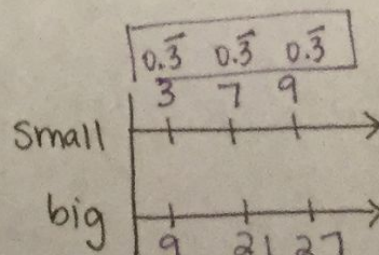 0.3̅ 0.3̅ 0.3̅
3 7 9
small
big
9 21 27